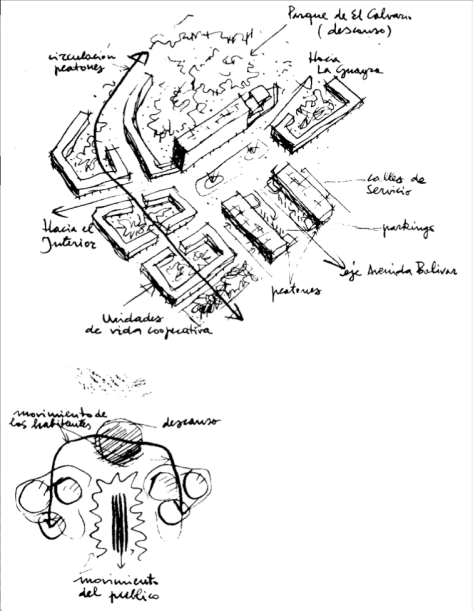 Parque de El Calvario
(descanso)
circulación
peatones
Hacia
La Guayra
calles de
Servicio
Hacia el
Interior
parkings
eje Avenida Bolivar
peatones
Unidades
de vida cooperativa
movimiento de
los habitantes
descanso
movimiento
del publico